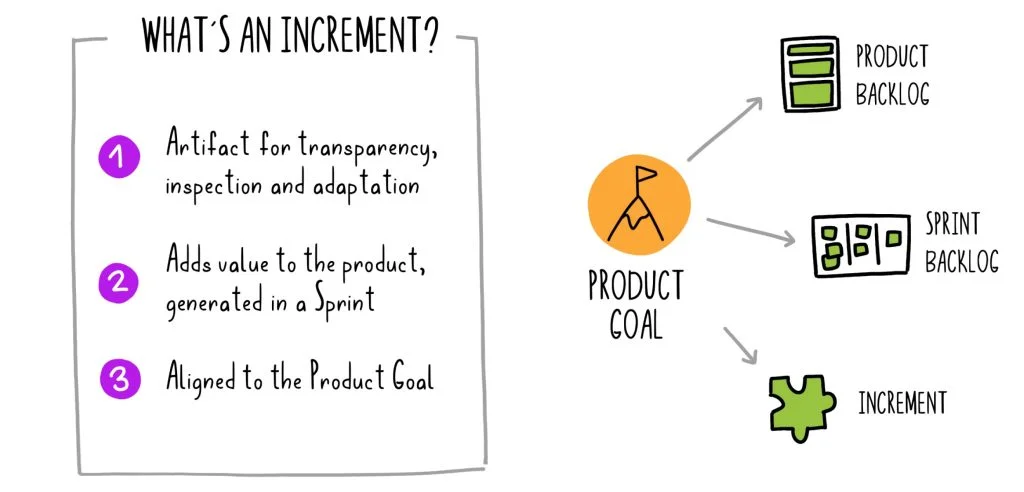 WHAT'S AN INCREMENT?
1 Artifact for transparency,
inspection and adaptation
2 Adds value to the product,
generated in a Sprint
3 Aligned to the Product Goal
PRODUCT
GOAL
PRODUCT
BACKLOG
SPRINT
BACKLOG
INCREMENT